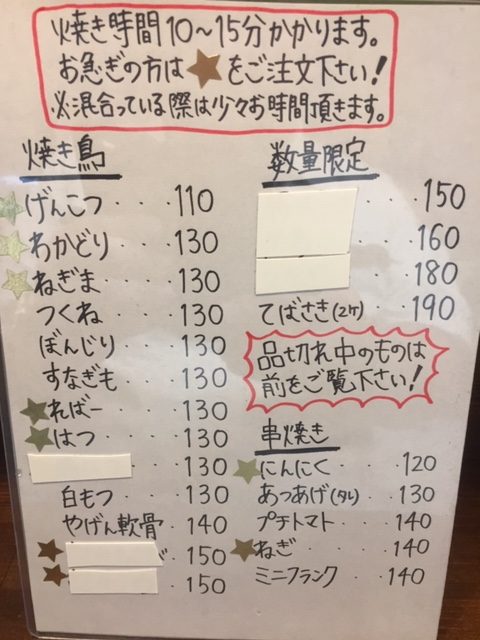 焼き時間10〜15分かかります。
お急ぎの方は★をご注文下さい!
※混合っている際は少々お時間頂きます。
焼き鳥
★げんこつ・・・110
★わかどり・・・130
★ねぎま・・・130
つくね・・・130
ぼんじり・・・130
すなぎも・・・130
★ればー・・・130
★はつ・・・130
・・130
白もつ・・・130
やげん軟骨・140
★・・150
★・・150
数量限定
・・150
・・160
・・180
てばさき(2ケ)・・190
品切れ中のものは
前をご覧下さい!
串焼き
★にんにく・・・120
あつあげ(タレ)・・130
プチトマト・・・140
★ねぎ・・・140
ミニフランク・・140